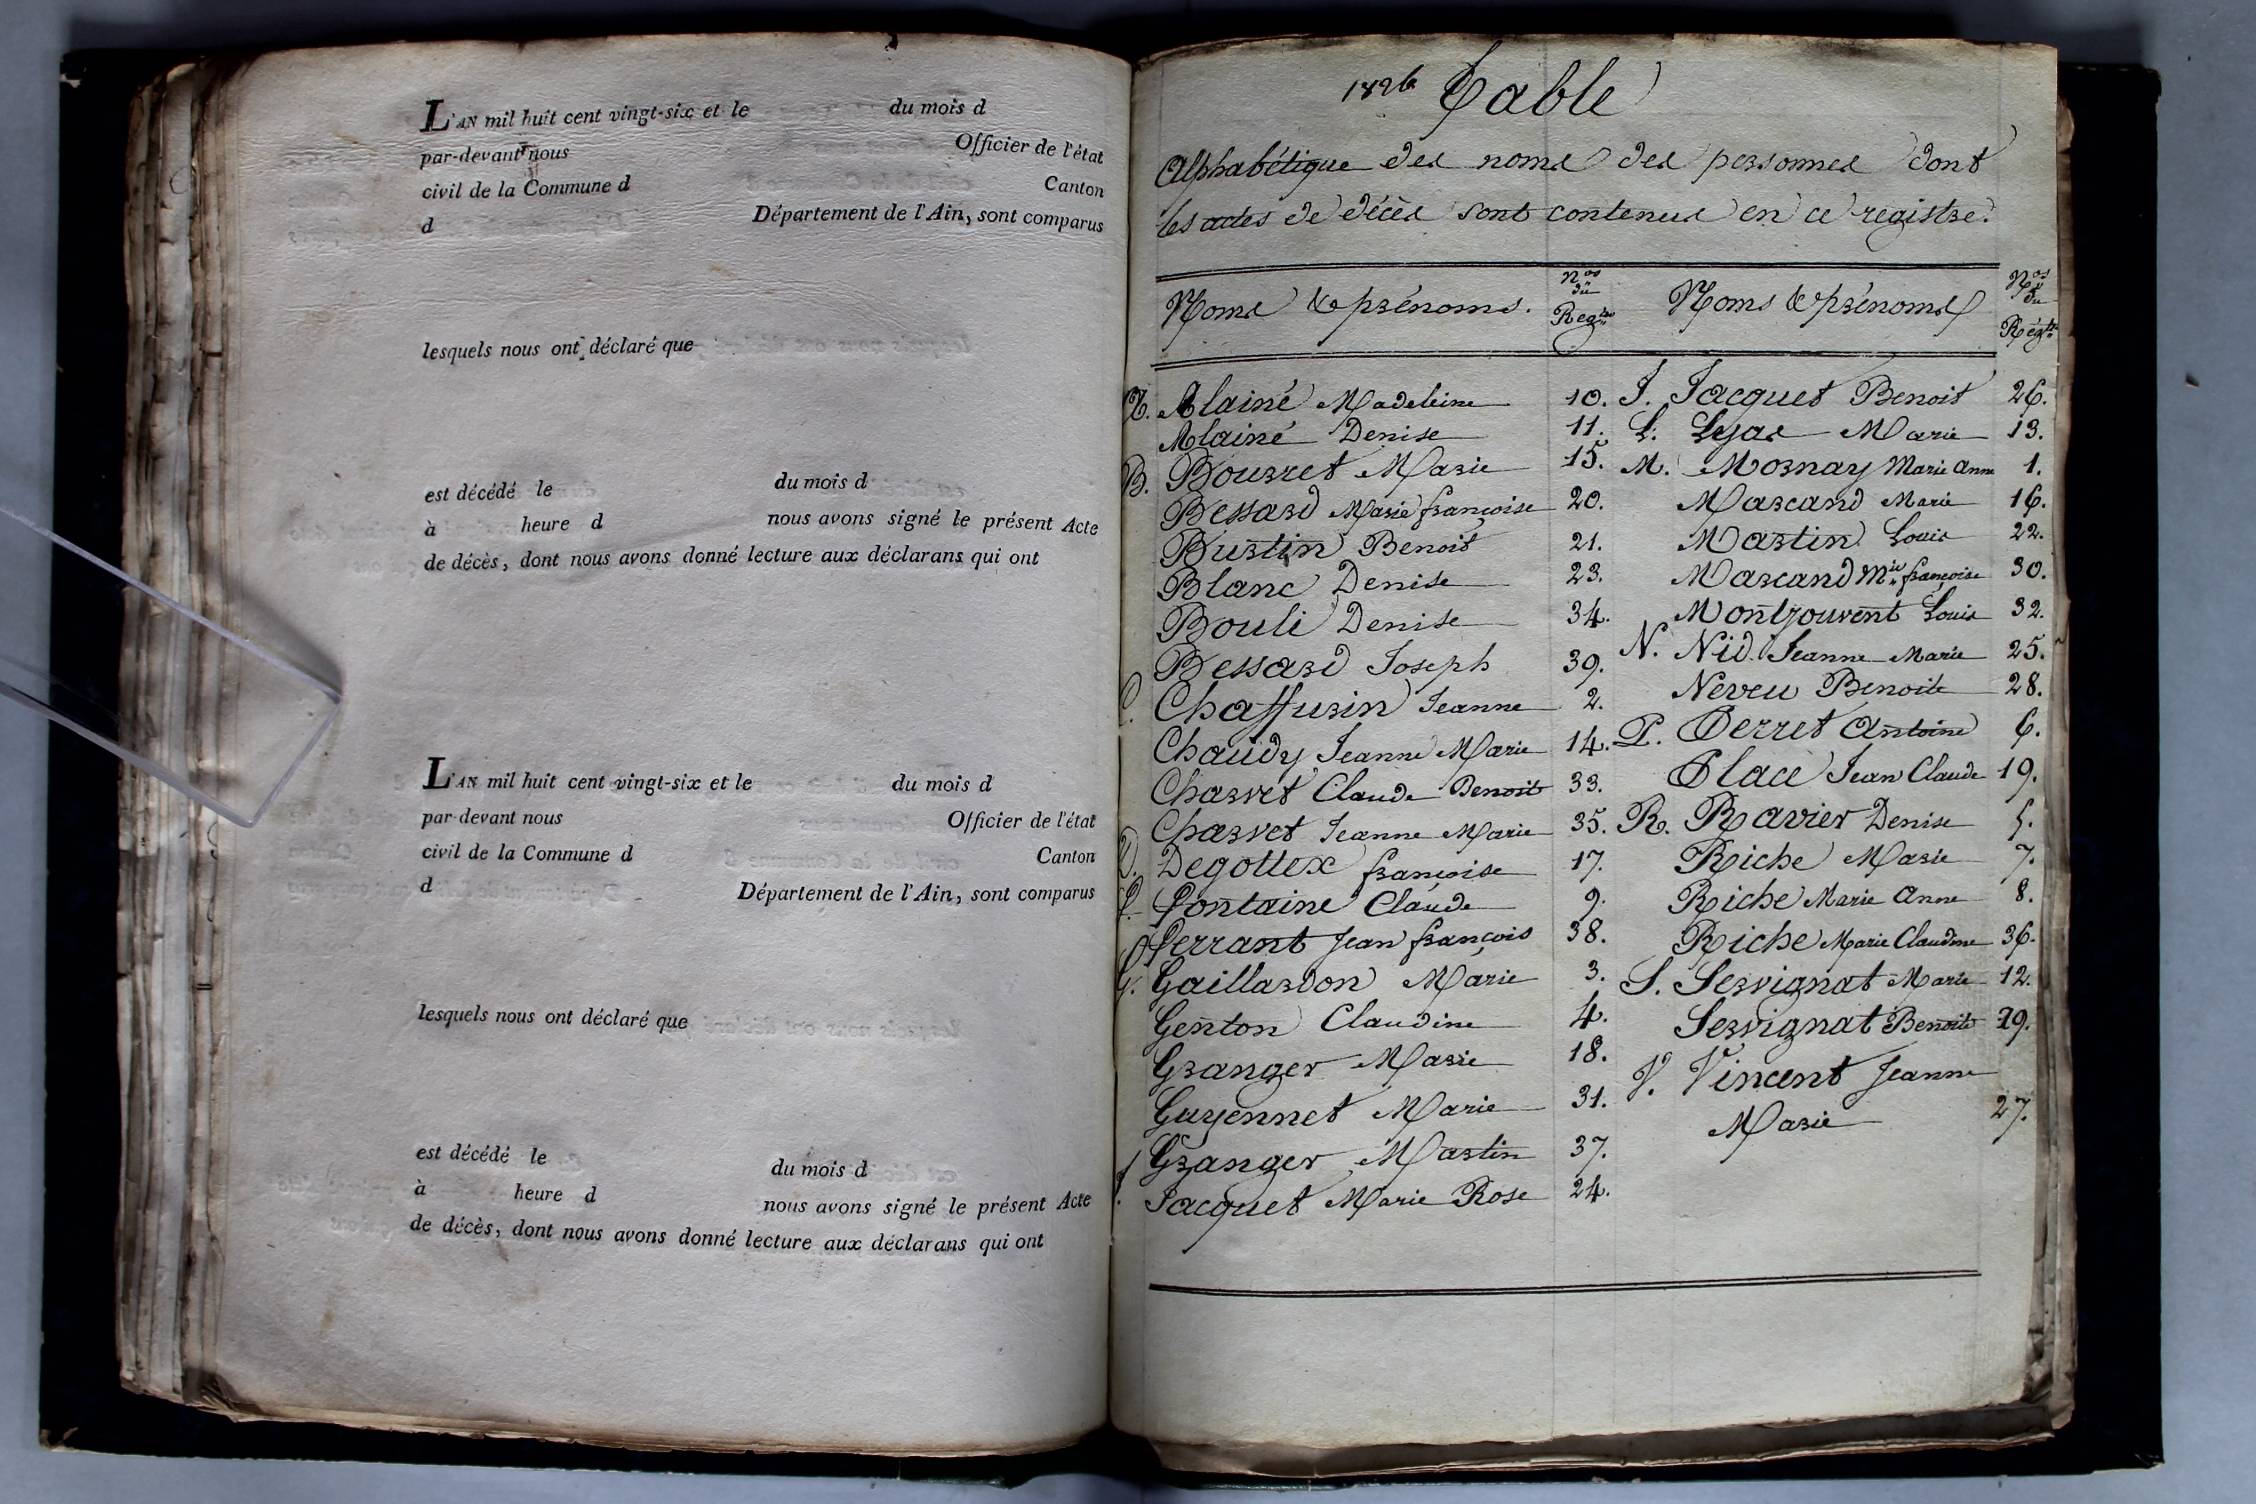 L'AN mil huit cent vingt-six et le du mois d
par-devant nous Officier de l'état
civil de la Commune d Canton
d Département de l'Ain, sont comparus
lesquels nous ont déclaré que
est décédé le du mois d
à heure d nous avons signé le présent Acte
de décès, dont nous avons donné lecture aux déclarans qui ont
L'AN mil huit cent vingt-six et le du mois d
par-devant nous Officier de l'état
civil de la Commune d Canton
d Département de l'Ain, sont comparus
lesquels nous ont déclaré que
est décédé le du mois d
à heure d nous avons signé le présent Acte
de décès, dont nous avons donné lecture aux déclarans qui ont
1826 Table
Alphabétique des noms des personnes dont
les actes de décès sont contenus en ce registre.
Noms & prénoms.
Nos du Regtre
A. Alainé Madeleine 10.
Alainé Denise 11.
B. Bourret Marie 15.
Bessard Marie françoise 20.
Burtin Benoit 21.
Blanc Denise 23.
Bouli Denise 34.
Bessard Joseph 39.
C. Chaffurin Jeanne 2.
Chaudy Jeanne Marie 14.
Charvet Claude Benoit 33.
Charvet Jeanne Marie 35.
D. Degottex françoise 17.
F. Fontaine Claude 9.
Ferrant Jean françois 38.
G. Gaillardon Marie 3.
Genton Claudine 4.
Granger Marie 18.
Guyennet Marie 31.
Granger Martin 37.
J. Jacquet Marie Rose 24.
Noms & prénoms
Nos du Régtre
J. Jacquet Benoit 26.
L. Lyas Marie 13.
M. Mornay Marie Anne 1.
Marcand Marie 16.
Martin Louis 22.
Marcand Mie françoise 30.
Montjouvent Louis 32.
N. Nid Jeanne Marie 25.
Neveu Benoite 28.
P. Perret Antoine 6.
Place Jean Claude 19.
R. Ravier Denise 5.
Riche Marie 7.
Riche Marie Anne 8.
Riche Marie Claudine 36.
S. Servignat Marie 12.
Servignat Benoite 29.
V. Vincent Jeanne
Marie 27.